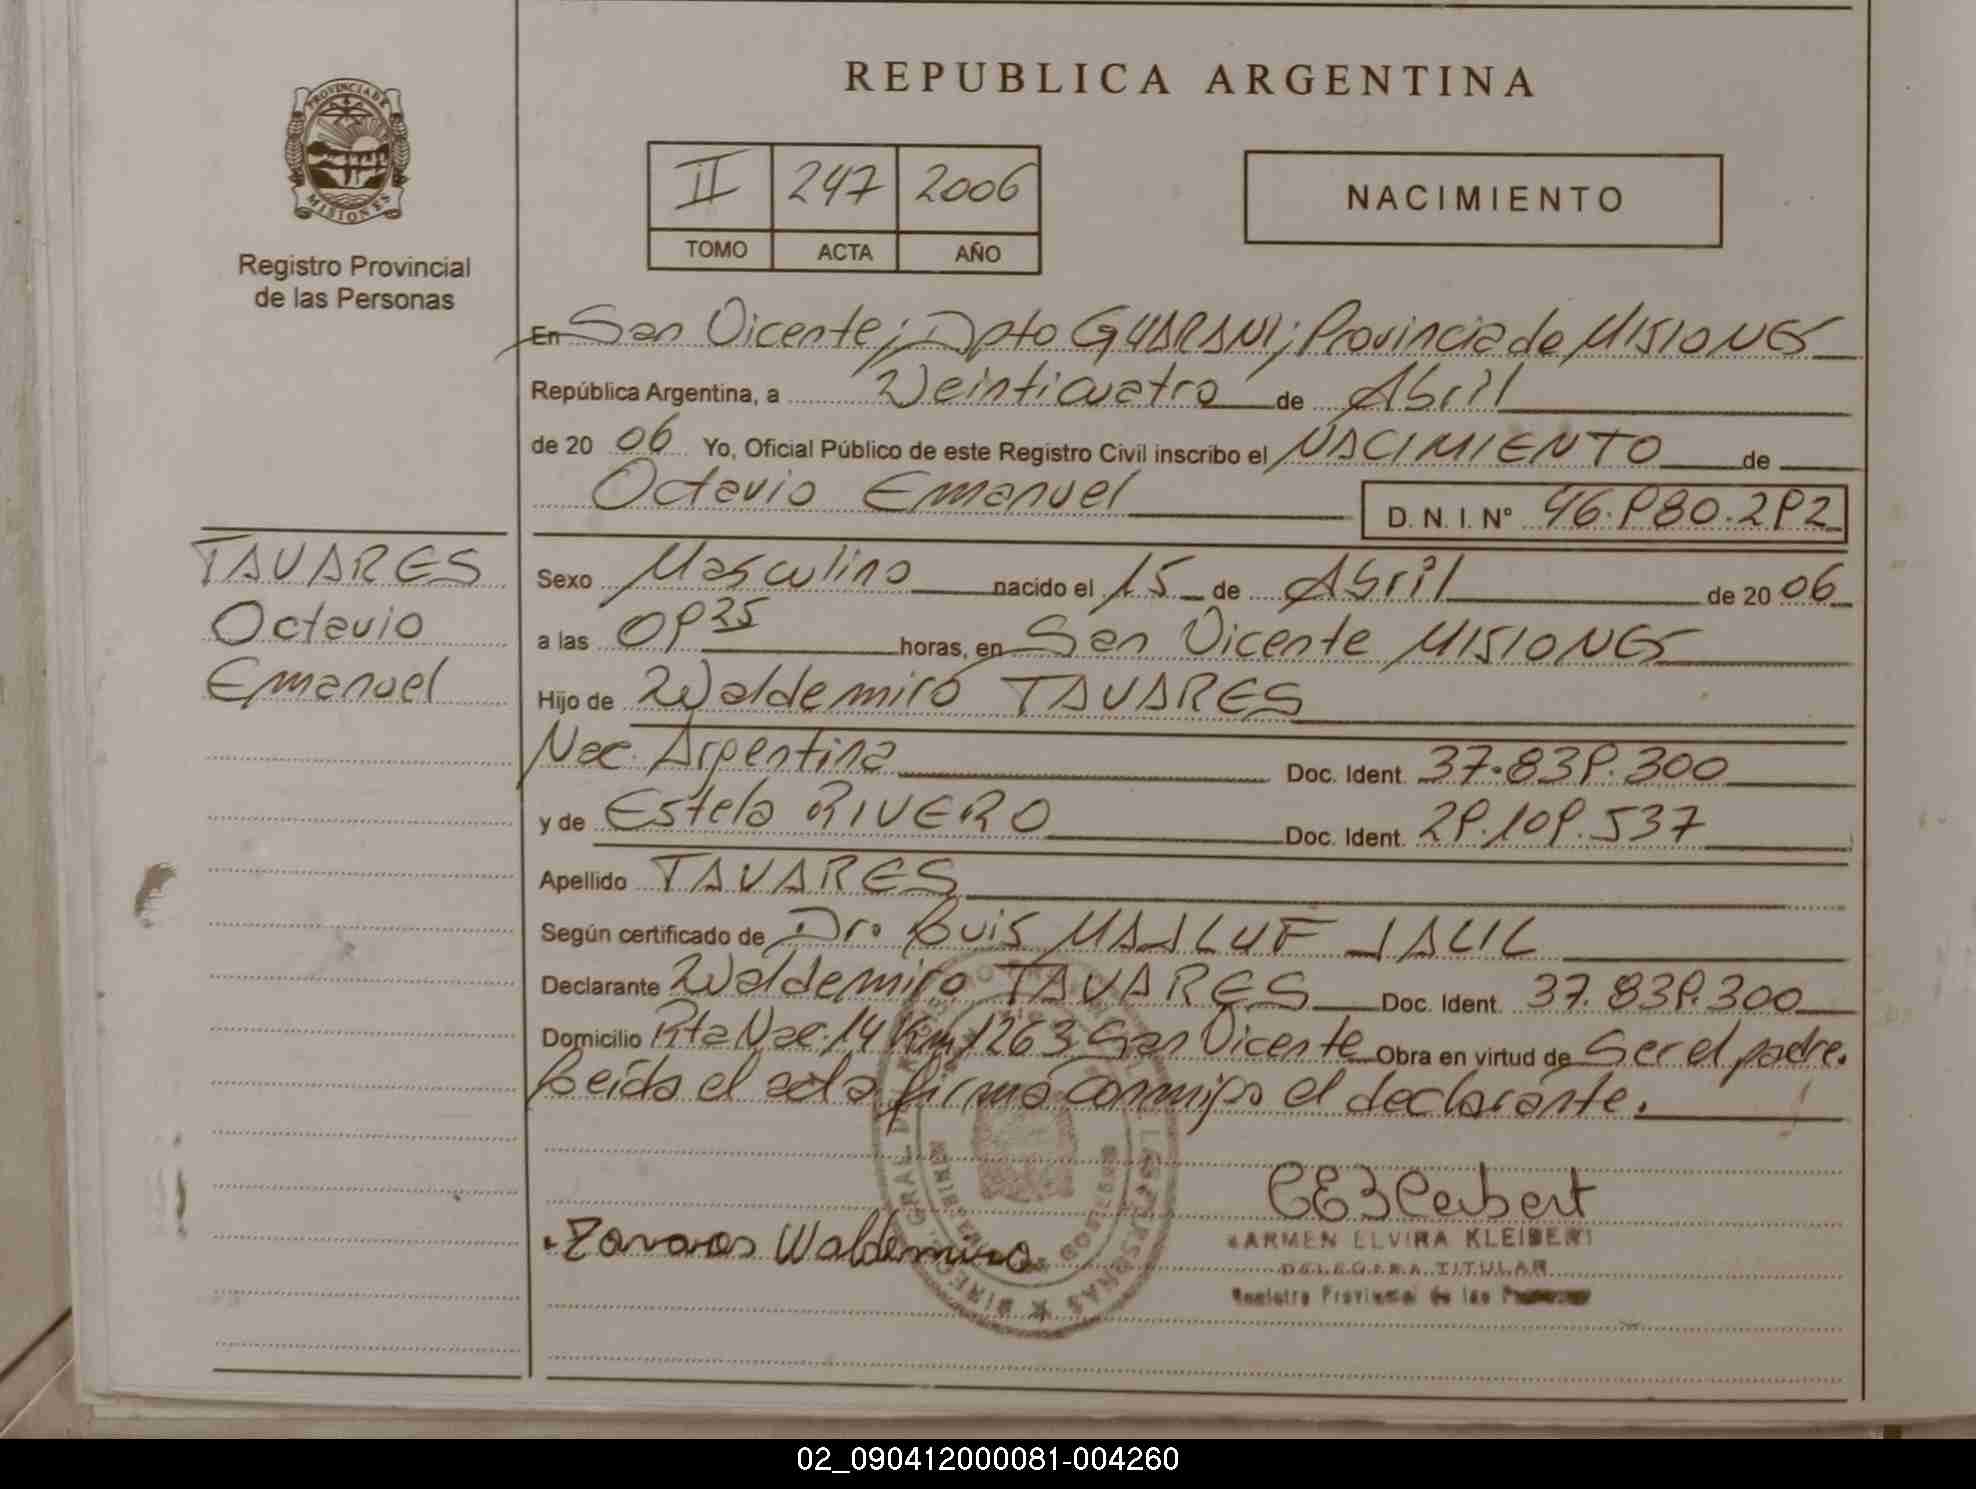 PROVINCIA DE
MISIONES
Registro Provincial
de las Personas
REPUBLICA ARGENTINA
II 247 2006
TOMO ACTA AÑO
NACIMIENTO
En San Vicente; Dpto GUARANI; Provincia de MISIONES
República Argentina, a Veinticuatro de Abril
de 20 06 Yo, Oficial Público de este Registro Civil inscribo el NACIMIENTO de
Octavio Emanuel D. N. I. N° 46.980.292
TAVARES
Octavio
Emanuel
Sexo Masculino nacido el 15 de Abril de 20 06
a las 09 25 horas, en San Vicente MISIONES
Hijo de Waldemiro TAVARES
Nac. Argentina Doc. Ident. 37.839.300
y de Estela RIVERO Doc. Ident. 29.109.537
Apellido TAVARES
Según certificado de Dr. Luis MAALUF JALIL
Declarante Waldemiro TAVARES Doc. Ident. 37.839.300
Domicilio Rta Nac. 14 Km 1263 San Vicente Obra en virtud de Ser el padre.
Leída el acta firma conmigo el declarante.
Waldemiro
CARMEN ELVIRA KLEIBERT
DELEGADA TITULAR
Registro Provincial de las Personas
02_090412000081-004260